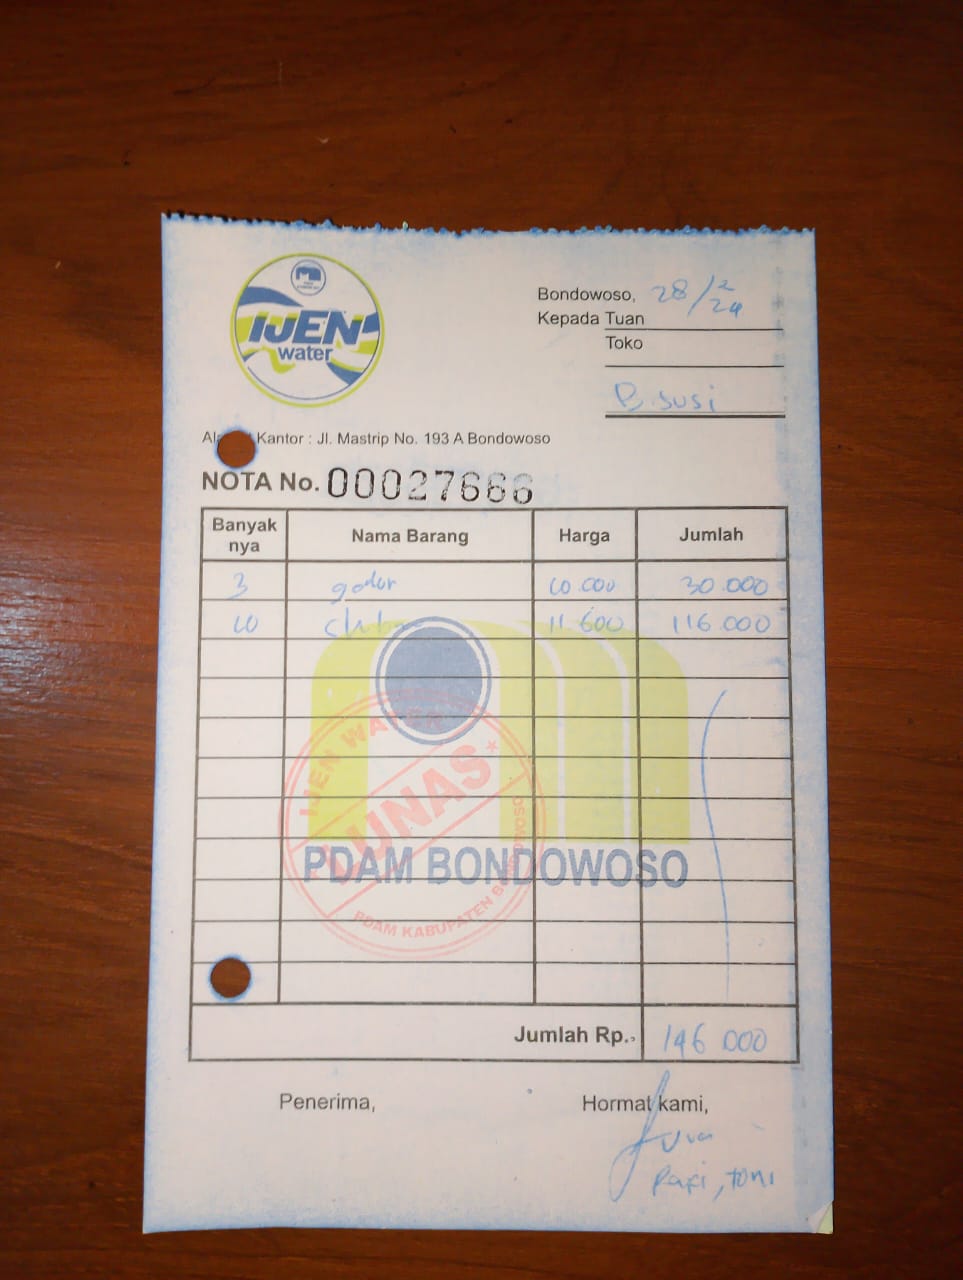 IJEN
water
Bondowoso, 28/2/24
Kepada Tuan
Toko
B. Susi
Kantor : Jl. Mastrip No. 193 A Bondowoso
NOTA No. 00027666
Banyak nya Nama Barang Harga Jumlah
3 galon 10.000 30.000
10 11.600 116.000
IJEN WATER
LUNAS
PDAM KABUPATEN BONDOWOSO
PDAM BONDOWOSO
Jumlah Rp., 146.000
Penerima, Hormat kami,
Rafi, Toni